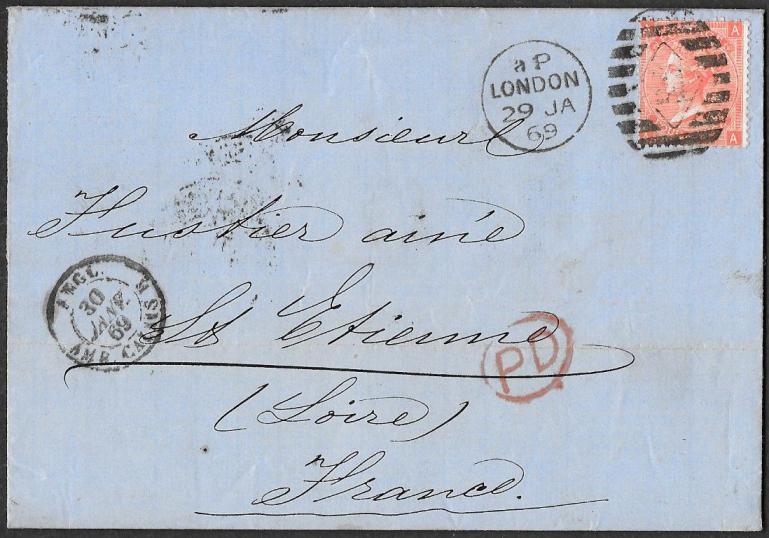 aP
LONDON
29 JA
69
A
A
Monsieur
Fustier ainé
St Etienne
(Loire)
France.
ANGL.
30
JANV.
69
AMB. CALAIS H
PD